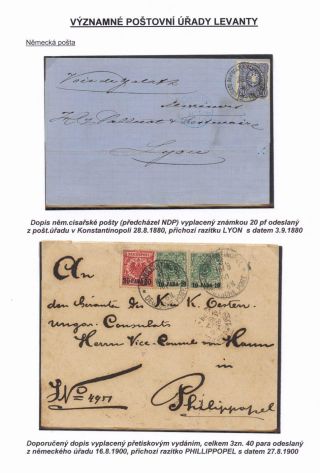 VÝZNAMNÉ POŠTOVNÍ ÚŘADY LEVANTY
Německá pošta
Lyon
Dopis něm.císařské pošty (předcházel NDP) vyplacený známkou 20 pf odeslaný
z pošt.úřadu v Konstantinopoli 28.8.1880, příchozí razítku LYON s datem 3.9.1880
10 PARA 10
10 PARA 10
An
den Gerante des K. u. K. Oesterr.
ungar. Consulats
Herrn Vice-Consul von Hann
in
Philippopel
Doporučený dopis vyplacený přetiskovým vydáním, celkem 3zn. 40 para odeslaný
z německého úřadu 16.8.1900, příchozí razítko PHILLIPPOPEL s datem 27.8.1900